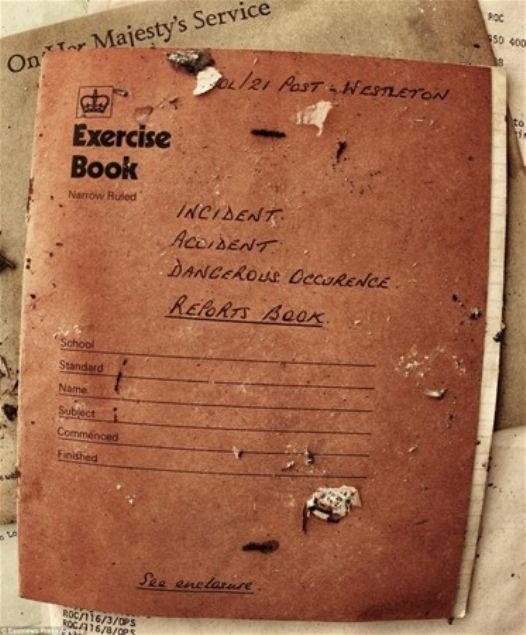 On Her Majesty's Service
ROC
550 400
OL/21 POST - WESTLETON
Exercise
Book
Narrow Ruled
INCIDENT.
ACCIDENT.
DANGEROUS OCCURENCE
REPORTS BOOK.
School
Standard
Name
Subject
Commenced
Finished
See enclosure.
ROC/116/3/OPS
ROC/116/8/OPS